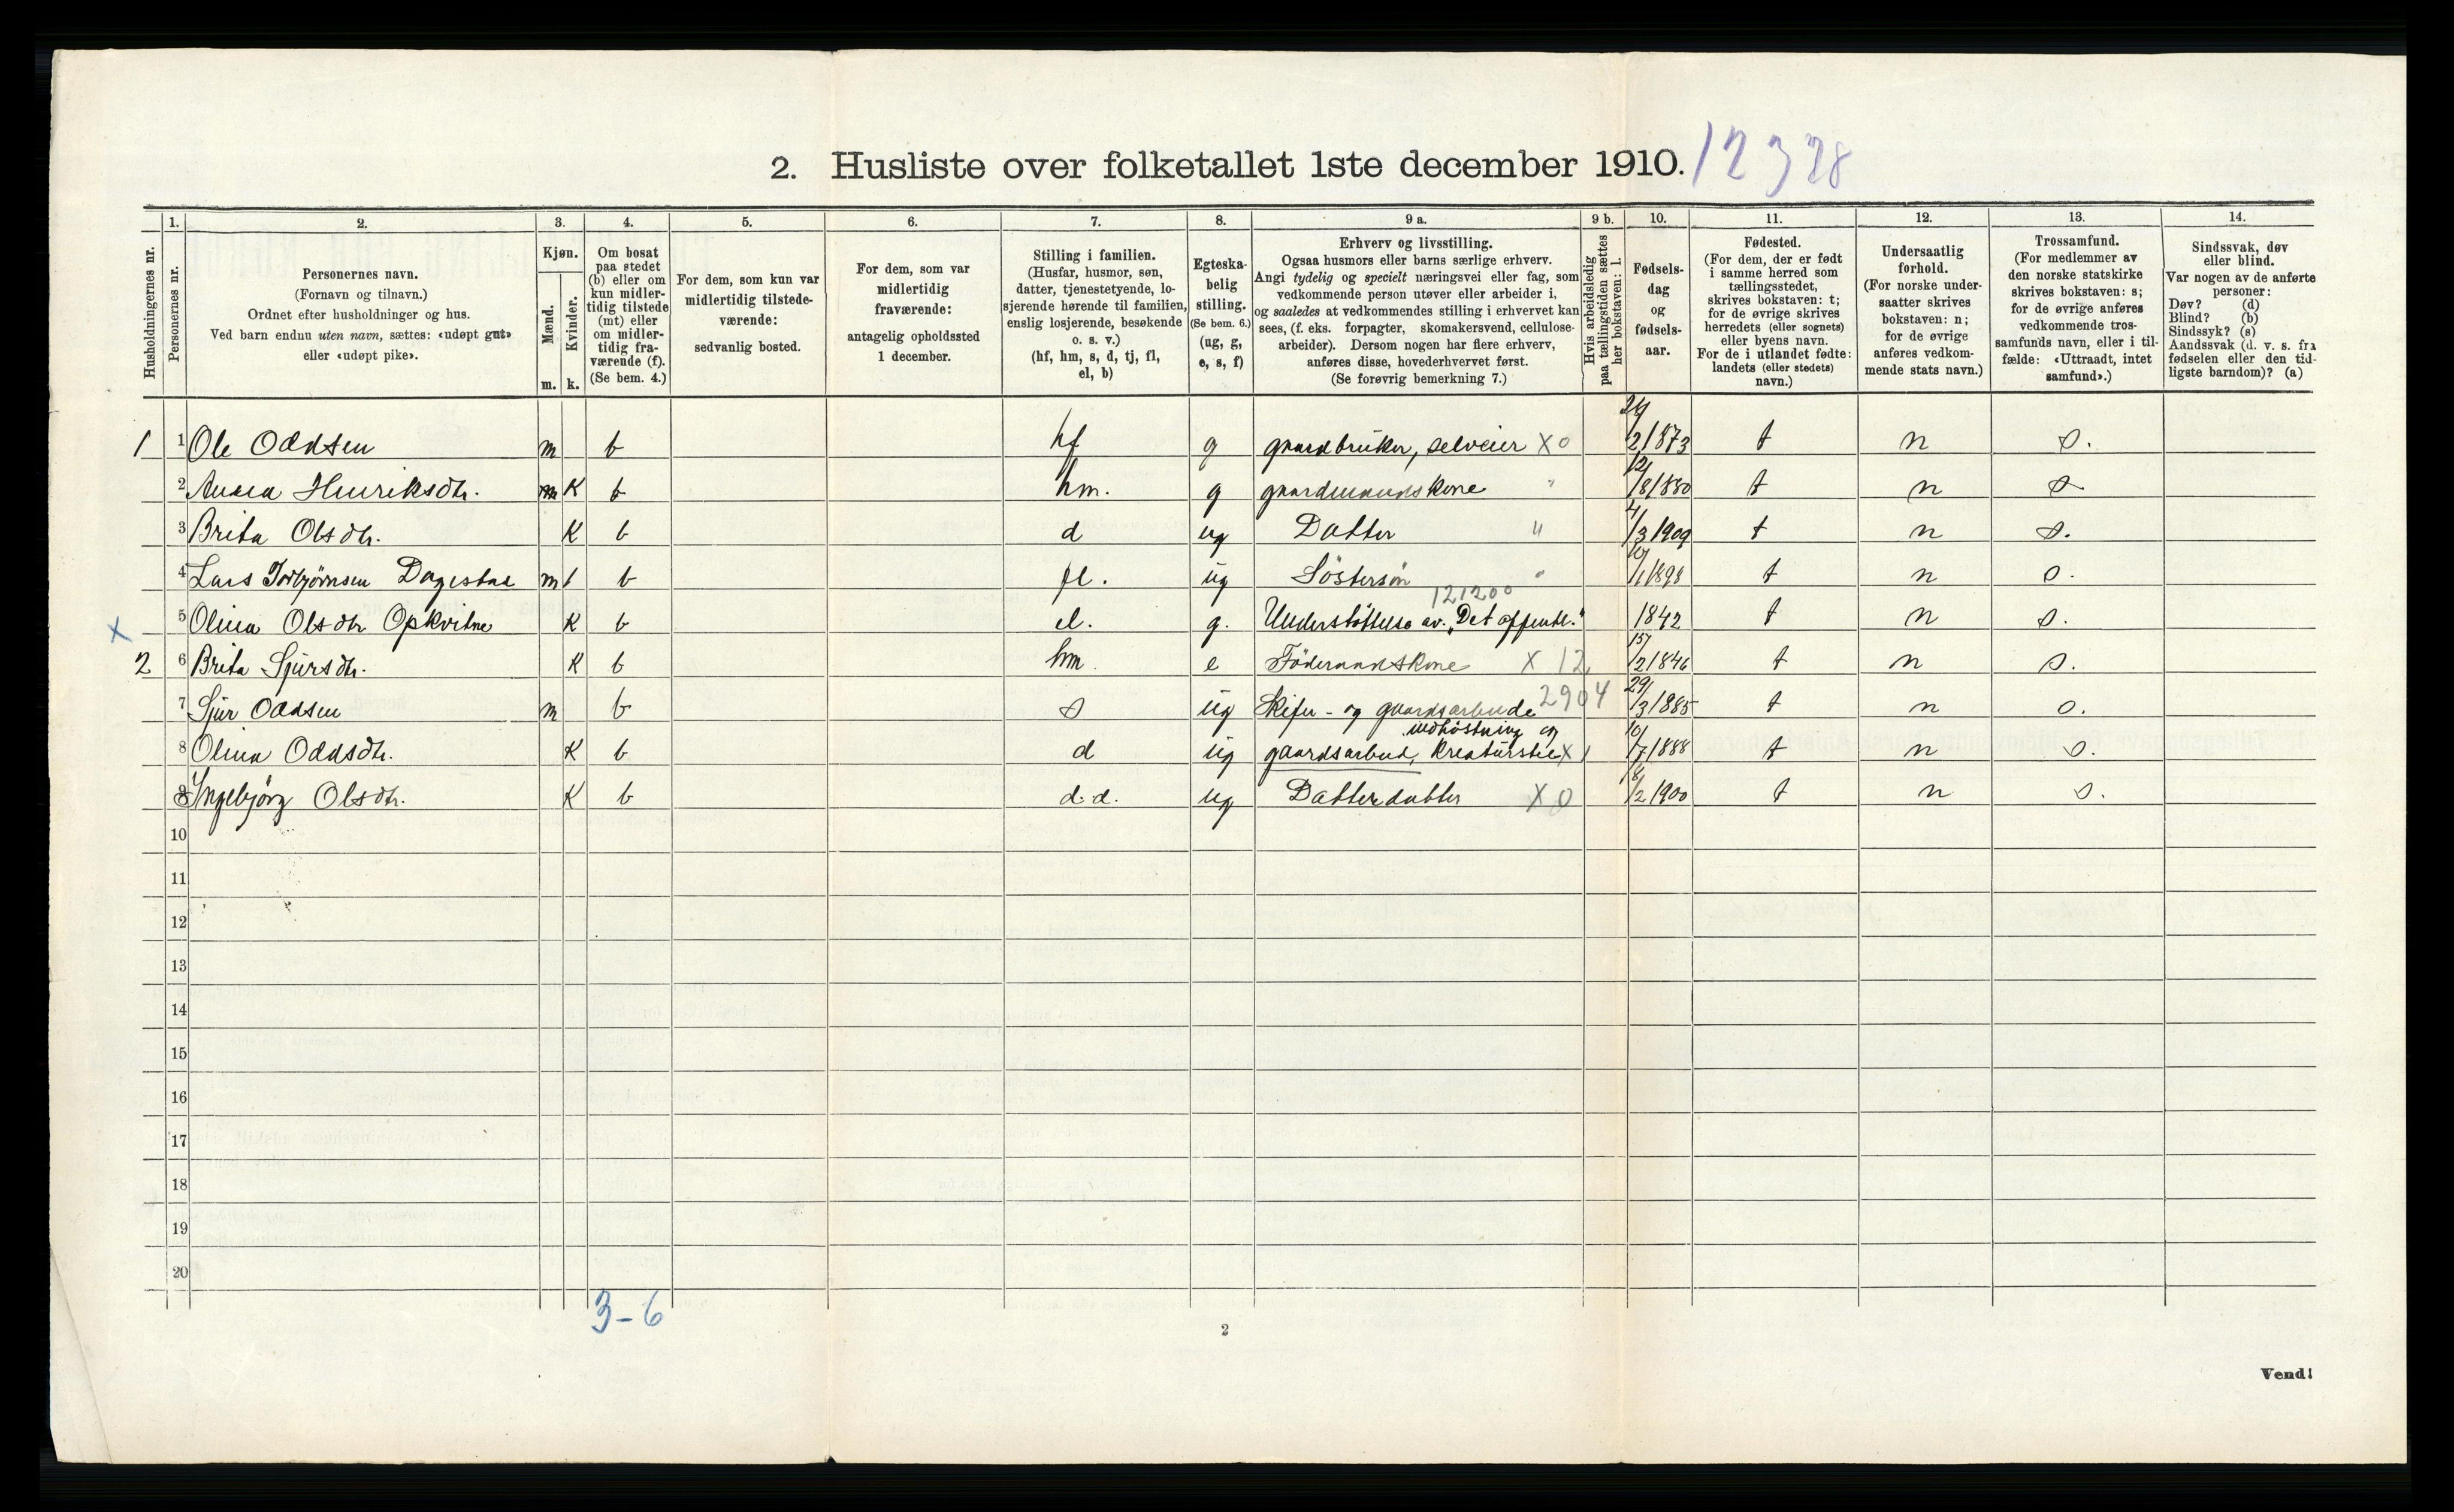 2. Husliste over folketallet 1ste december 1910. 12328
1. 2. 3. 4. 5. 6. 7. 8. 9 a. 9 b. 10. 11. 12. 13. 14.
Husholdningernes nr.
Personernes nr.
Personernes navn.
(Fornavn og tilnavn.)
Ordnet efter husholdninger og hus.
Ved barn endnu uten navn, sættes: «udøpt gut»
eller «udøpt pike».
Kjøn.
Mænd.
Kvinder.
m. k.
Om bosat
paa stedet
(b) eller om
kun midler-
tidig tilstede
(mt) eller
om midler-
tidig fra-
værende (f).
(Se bem. 4.)
For dem, som kun var
midlertidig tilstede-
værende:
sedvanlig bosted.
For dem, som var
midlertidig
fraværende:
antagelig opholdssted
1 december.
Stilling i familien.
(Husfar, husmor, søn,
datter, tjenestetyende, lo-
sjerende hørende til familien,
enslig losjerende, besøkende
o. s. v.)
(hf, hm, s, d, tj, fl,
el, b)
Egteska-
belig
stilling.
(Se bem. 6.)
(ug, g,
e, s, f)
Erhverv og livsstilling.
Ogsaa husmors eller barns særlige erhverv.
Angi tydelig og specielt næringsvei eller fag, som
vedkommende person utøver eller arbeider i,
og saaledes at vedkommendes stilling i erhvervet kan
sees, (f. eks. forpagter, skomakersvend, cellulose-
arbeider). Dersom nogen har flere erhverv,
anføres disse, hovederhvervet først.
(Se forøvrig bemerkning 7.)
Hvis arbeidsledig
paa tællingstiden sættes
her bokstaven: l.
Fødsels-
dag
og
fødsels-
aar.
Fødested.
(For dem, der er født
i samme herred som
tællingsstedet,
skrives bokstaven: t;
for de øvrige skrives
herredets (eller sognets)
eller byens navn.
For de i utlandet fødte:
landets (eller stedets)
navn.)
Undersaatlig
forhold.
(For norske under-
saatter skrives
bokstaven: n;
for de øvrige
anføres vedkom-
mende stats navn.)
Trossamfund.
(For medlemmer av
den norske statskirke
skrives bokstaven: s;
for de øvrige anføres
vedkommende tros-
samfunds navn, eller i til-
fælde: «Uttraadt, intet
samfund».)
Sindssvak, døv
eller blind.
Var nogen av de anførte
personer:
Døv? (d)
Blind? (b)
Sindssyk? (s)
Aandssvak (d. v. s. fra
fødselen eller den tid-
ligste barndom)? (a)
1 1 Ole Oddsen m b hf g gaardbruker, selveier X0 24/2 1873 t n s.
2 Anna Henriksdtr. K b hm. g gaardmandskone " 12/8 1880 t n s
3 Brita Olsdtr. K b d ug Datter " 4/3 1909 t n s.
4 Lars Torbjørnsen Dagestad m b fl. ug Söstersön " 10/1 1898 t n s.
121200
X 5 Olina Olsdtr Opkvitne K b el. g. Understöttelse av "Det offentl." 1842 t n s.
2 6 Brita Sjursdtr. K b hm. e Födemandskone X 12 15/2 1846 t n s.
7 Sjur Oddsen m b s ug Skifer- og gaardsarbeide 2904 29/3 1885 t n s.
indhöstning og
8 Olina Oddsdtr. K b d ug gaardsarbeid, kreaturstel X1 10/7 1888 t n s.
9 Ingebjörg Olsdtr. K b d.d. ug Datterdatter X0 8/2 1900 t n s.
10
11
12
13
14
15
16
17
18
19
20
3-6
2
Vend!